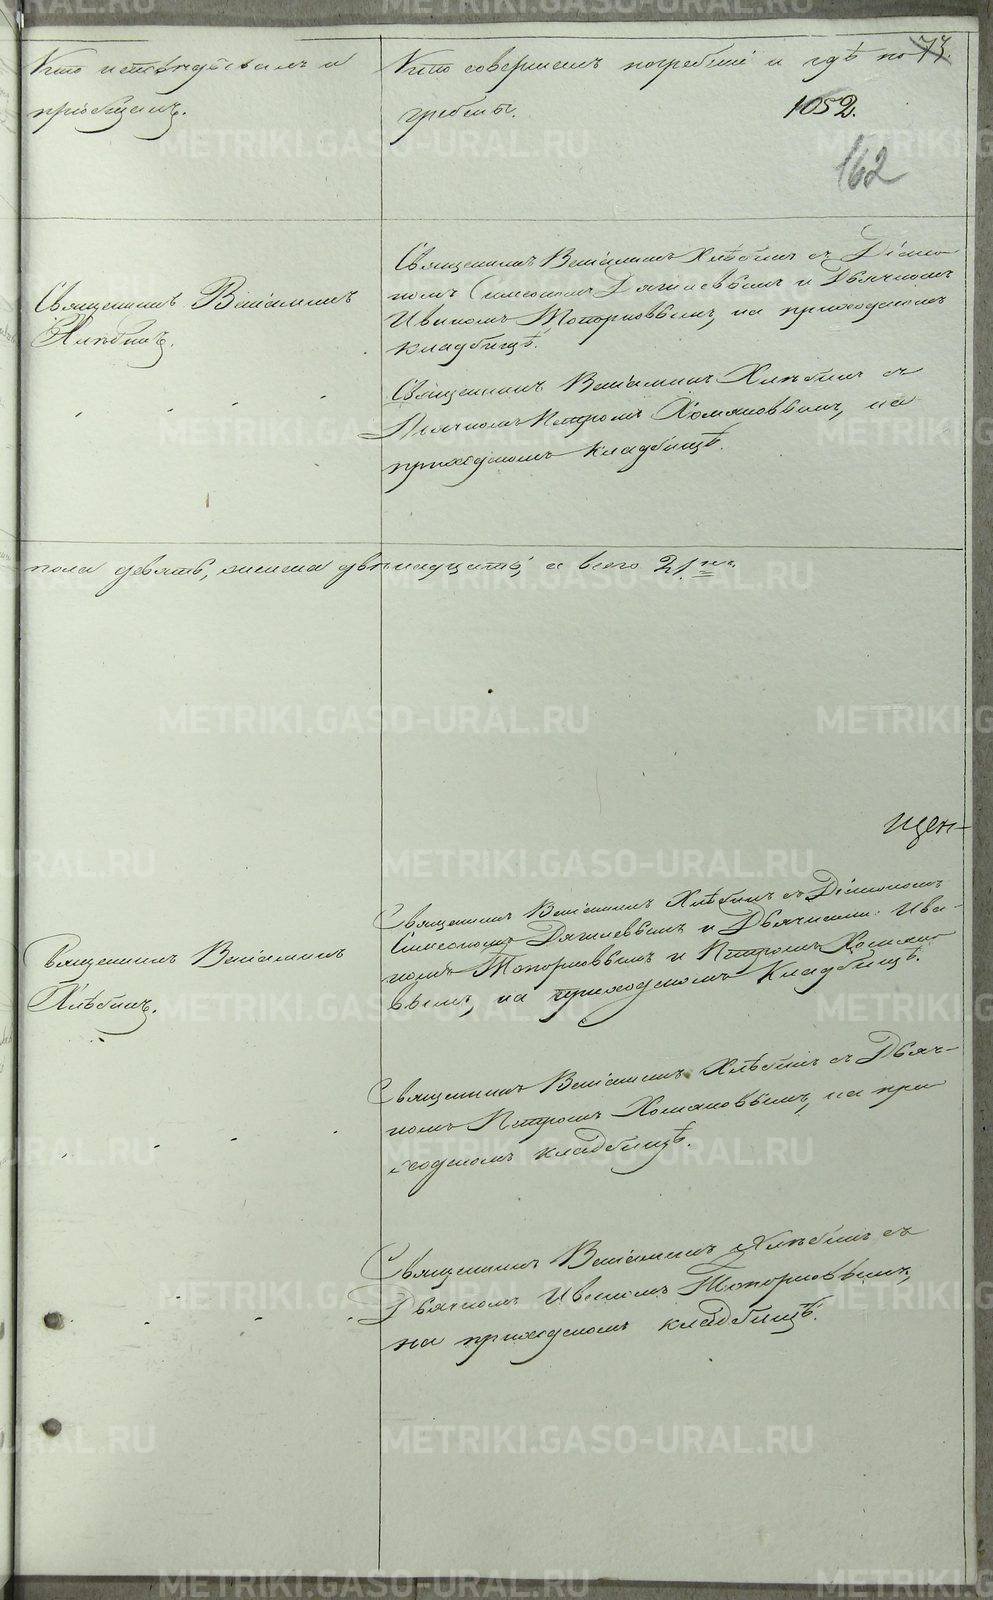 Кто исповѣдывалъ и
пріобщалъ.
Кто совершалъ погребеніе и гдѣ по
гребены.
73.
1052.
162
Священникъ Веніаминъ
Хлѣбинъ.
Священникъ Веніаминъ Хлѣбинъ съ Діако
номъ Симеономъ Дягилевымъ и Дьячкомъ
Иваномъ Топорковымъ, на приходскомъ
кладбищѣ.
Священникъ Веніаминъ Хлѣбинъ съ
Дьячкомъ Петромъ Хомяковымъ, на
приходскомъ кладбищѣ.
пола девять, женска двѣнадцать, а всего 21.
щен-
Священникъ Веніаминъ
Хлѣбинъ.
Священникъ Веніаминъ Хлѣбинъ съ Діакономъ
Симеономъ Дягилевымъ и Дьячками: Ива-
номъ Топорковымъ и Петромъ Хомяко
вымъ, на приходскомъ Кладбищѣ.
Священникъ Веніаминъ Хлѣбинъ съ Дьяч-
комъ Петромъ Хомяковымъ, на при
ходскомъ кладбищѣ.
Священникъ Веніаминъ Хлѣбинъ съ
Дьячкомъ Иваномъ Топорковымъ,
на приходскомъ кладбищѣ.
METRIKI.GASO-URAL.RU